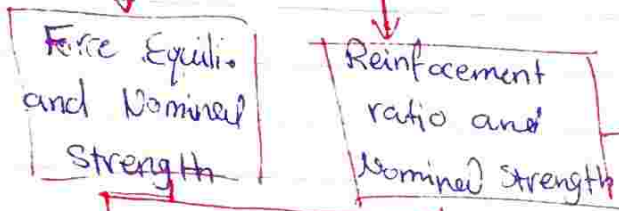 Force Equili.
and Nominal
Strength
Reinfocement
ratio and
Nominal Strength